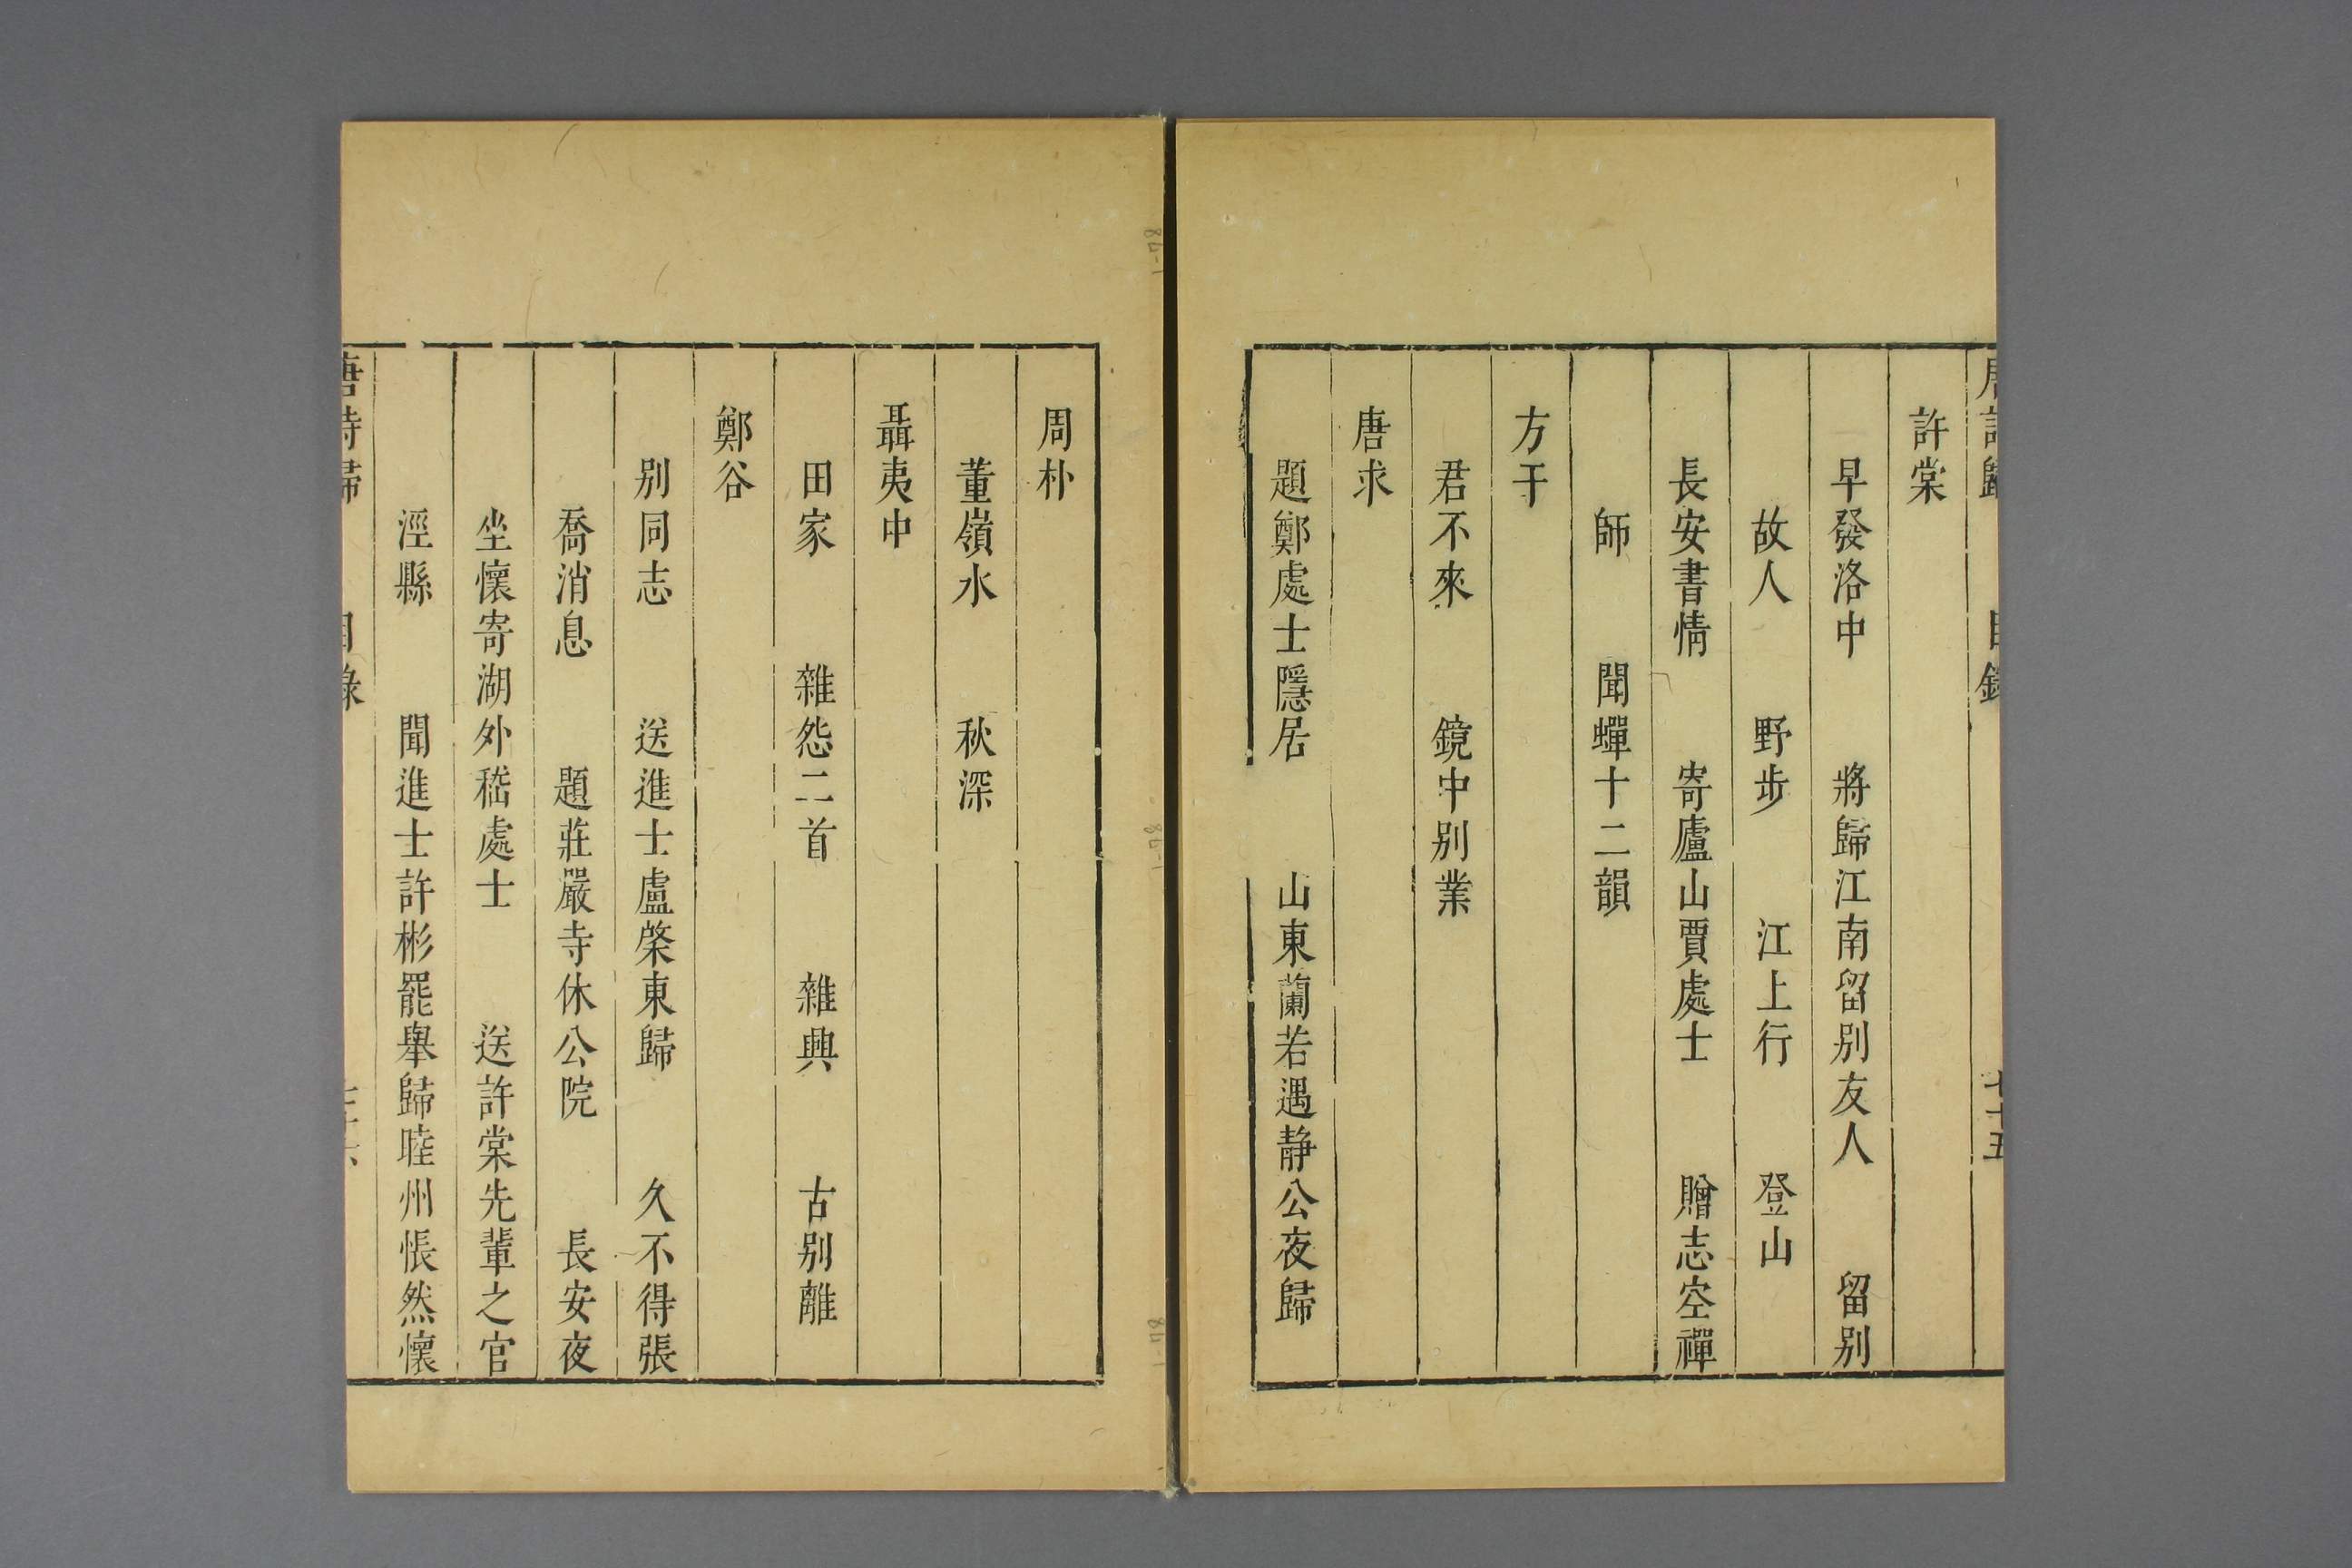 許棠
早發洛中　將歸江南留別友人　留別
故人　野步　江上行　登山
長安書情　寄廬山賈處士　贈志空禪
師　聞蟬十二韻
方干
君不來　鏡中別業
唐求
題鄭處士隱居　山東蘭若遇静公夜歸
周朴
董嶺水　秋深
聶夷中
田家　雜怨二首　雜興　古别離
鄭谷
别同志　送進士盧棨東歸　久不得張
喬消息　題莊嚴寺休公院　長安夜
坐懷寄湖外嵇處士　送許棠先輩之官
涇縣　聞進士許彬罷舉歸睦州悵然懷
唐詩歸　目錄